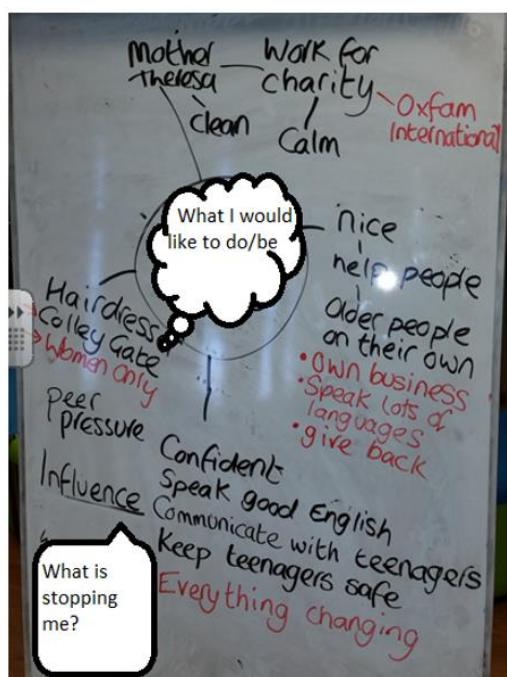 Mother
Theresa
Work for
charity
Clean
Calm
Oxfam
International
What I would
like to do/be
nice
help people
older people
on their own
• Own business
• Speak lots of
languages
• give back
Hairdress
Colley Gate
Women Only
peer
pressure
Influence
Confident
Speak good English
Communicate with teenagers
Keep teenagers safe
Everything changing
What is
stopping
me?